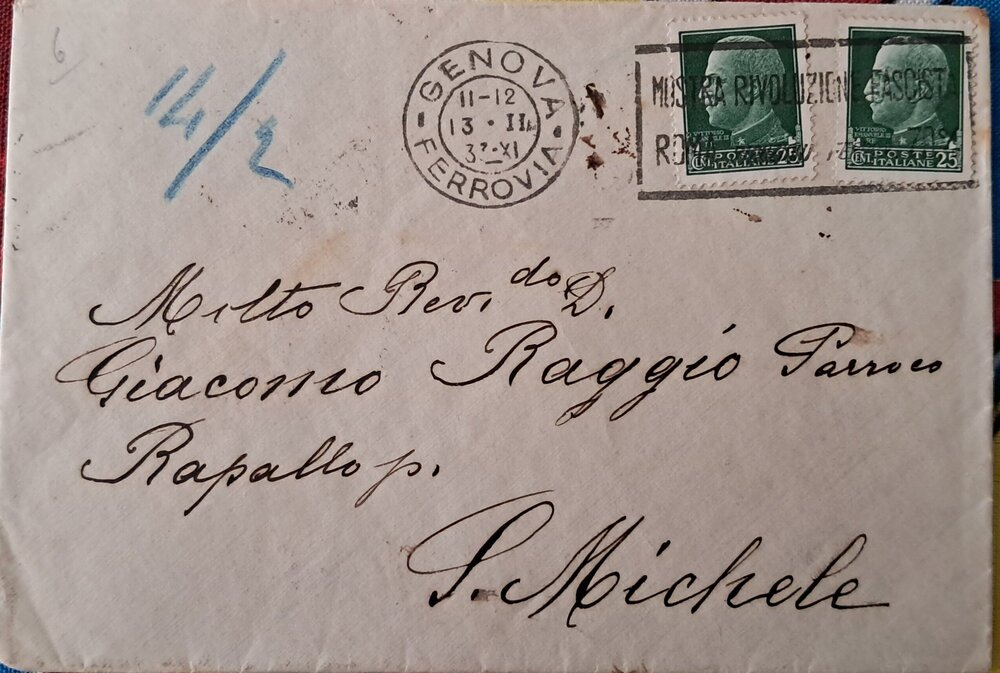 6
14/2
GENOVA
11-12
13 · II
33 XI
FERROVIA
MOSTRA RIVOLUZIONE FASCISTA
ROMA
VITTORIO EMANUELE III RE
POSTE ITALIANE 25
VITTORIO EMANUELE III RE
POSTE ITALIANE 25
Molto Rev.do D.
Giacomo Raggio Parroco
Rapallo p.
S. Michele